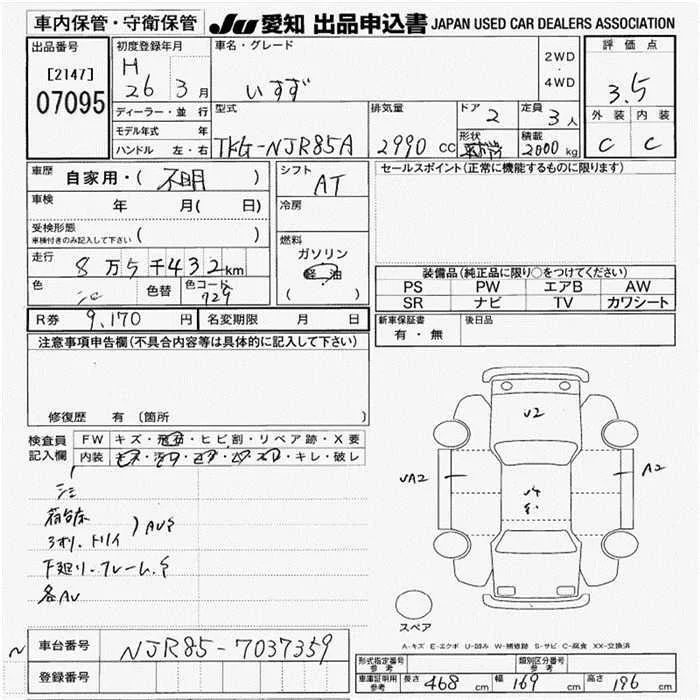 車内保管・守衛保管 JU 愛知 出品申込書 JAPAN USED CAR DEALERS ASSOCIATION
出品番号
[2147]
07095
初度登録年月
H
26 3月
ディーラー・並 行
モデル年式 年
ハンドル 左・右
車名・グレード
いすず
2WD
・
4WD
型式
TKG-NJR85A
排気量
2990 cc
ドア
2
定員
3人
形状
積載
2000 kg
評価点
3.5
外装 内装
C C
車歴 自家用・( 不明 )
車検 年 月( 日)
受検形態
車検付きのみ記入して下さい ( )
走行 8万5千432km
色 色替 色コード
729
シフト
AT
冷房
燃料
ガソリン
軽 油
( )
セールスポイント(正常に機能するものに限ります)
装備品(純正品に限り○をつけてください)
PS PW エアB AW
SR ナビ TV カワシート
R券 9,170 円 名変期限 月 日
新車保証書 後日品
有・無
注意事項申告欄(不具合内容等は具体的に記入して下さい)
修復歴 有 (箇所 )
検査員 FW キズ・飛石・ヒビ割・リペア跡・X要
記入欄 内装 キズ・汚れ・コゲ・ハゲ・スレ・キレ・破レ
下廻り.フレーム.サ
各AU
U2
A2
スペア
A-キズ E-エクボ U-凹み W-補修跡 S-サビ C-腐食 XX-交換済
車台番号 NJR85-7037359
登録番号
形式指定番号
参考
類別区分番号
参考
車庫証明用
参考
長さ 468 cm 幅 169 cm 高さ 196 cm